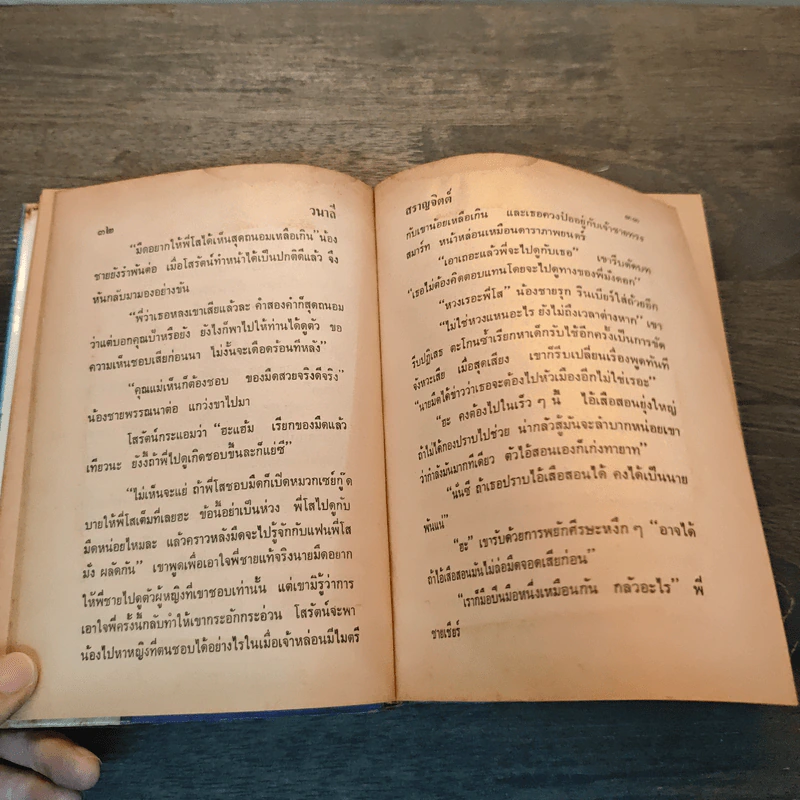 ๓๒ วนาลี
“มืดอยากให้พี่โสได้เห็นสุดถนอมเหลือเกิน” น้อง
ชายยังรำพันต่อ เมื่อโสรัตน์ทำหน้าได้เป็นปกติดีแล้ว จึง
หันกลับมามองอย่างขัน
“พี่ว่าเธอหลงเขาเสียแล้วละ คำสองคำก็สุดถนอม
ว่าแต่บอกคุณป้าหรือยัง ยังไงก็พาไปให้ท่านได้ดูตัว ขอ
ความเห็นชอบเสียก่อนนา ไม่งั้นจะเดือดร้อนทีหลัง”
“คุณแม่เห็นก็ต้องชอบ ของมืดสวยจริงดีจริง”
น้องชายพรรณนาต่อ แกว่งขาไปมา
โสรัตน์กระแอมว่า “อะแฮ้ม เรียกของมืดแล้ว
เทียวนะ ยังงี้ถ้าพี่ไปดูเกิดชอบขึ้นละก็แย่ซี”
“ไม่เห็นจะแย่ ถ้าพี่โสชอบมืดก็เปิดหมวกเซย์กู๊ด
บายให้พี่โสเต็มที่เลยฮะ ข้อนี้อย่าเป็นห่วง พี่โสไปดูกับ
มืดหน่อยไหมละ แล้วคราวหลังมืดจะไปรู้จักกับแฟนพี่โส
มั่ง ผลัดกัน” เขาพูดเพื่อเอาใจพี่ชายแท้จริงนายมืดอยาก
ให้พี่ชายไปดูตัวผู้หญิงที่เขาชอบเท่านั้น แต่เขามิรู้ว่าการ
เอาใจพี่ครั้งนี้กลับทำให้เขากระอักกระอ่วน โสรัตน์จะพา
น้องไปหาหญิงที่ตนชอบได้อย่างไรในเมื่อเจ้าหล่อนมีไมตรี
สราญจิตต์ ๓๓
กับเขาน้อยเหลือเกิน และเธอควงป๋ออยู่กับเจ้าชายทรง
สมาร์ท หน้าหล่อนเหมือนดาราภาพยนตร์
“เอาเถอะแล้วพี่จะไปดูกับเธอ” เขารีบตัดบท
“เธอไม่ต้องคิดตอบแทนโดยจะไปดูทางของพี่มั่งดอก”
“หวงเรอะพี่โส” น้องชายรุก รินเบียร์ใส่ถ้วยอีก
“ไม่ใช่หวงแหนอะไร ยังไม่ถึงเวลาต่างหาก” เขา
รีบปฏิเสธ ตะโกนซ้ำเรียกหาเด็กรับใช้อีกครั้งเป็นการขัด
จังหวะเสีย เมื่อสุดเสียง เขาก็รีบเปลี่ยนเรื่องพูดทันที
“นายมืดได้ข่าวว่าเธอจะต้องไปหัวเมืองอีกไม่ใช่เรอะ”
“ฮะ คงต้องไปในเร็ว ๆ นี้ ไอ้เสือสอนยุ่งใหญ่
ถ้าไม่ได้กองปราบไปช่วย น่ากลัวสู้มันจะลำบากหน่อยเขา
ว่ากำลังมันมากทีเดียว ตัวไอ้สอนเองก็เก่งทายาท”
“นั่นซี ถ้าเธอปราบไอ้เสือสอนได้ คงได้เป็นนาย
พันแน่”
“ฮะ” เขารับด้วยการพยักศีรษะหงึก ๆ “อาจได้
ถ้าไอ้เสือสอนมันไม่ล่อมืดจอดเสียก่อน”
“เราก็มือปืนมือหนึ่งเหมือนกัน กลัวอะไร” พี่
ชายเชียร์